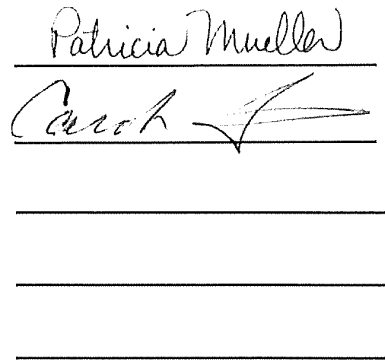 Patricia Mueller
Carol